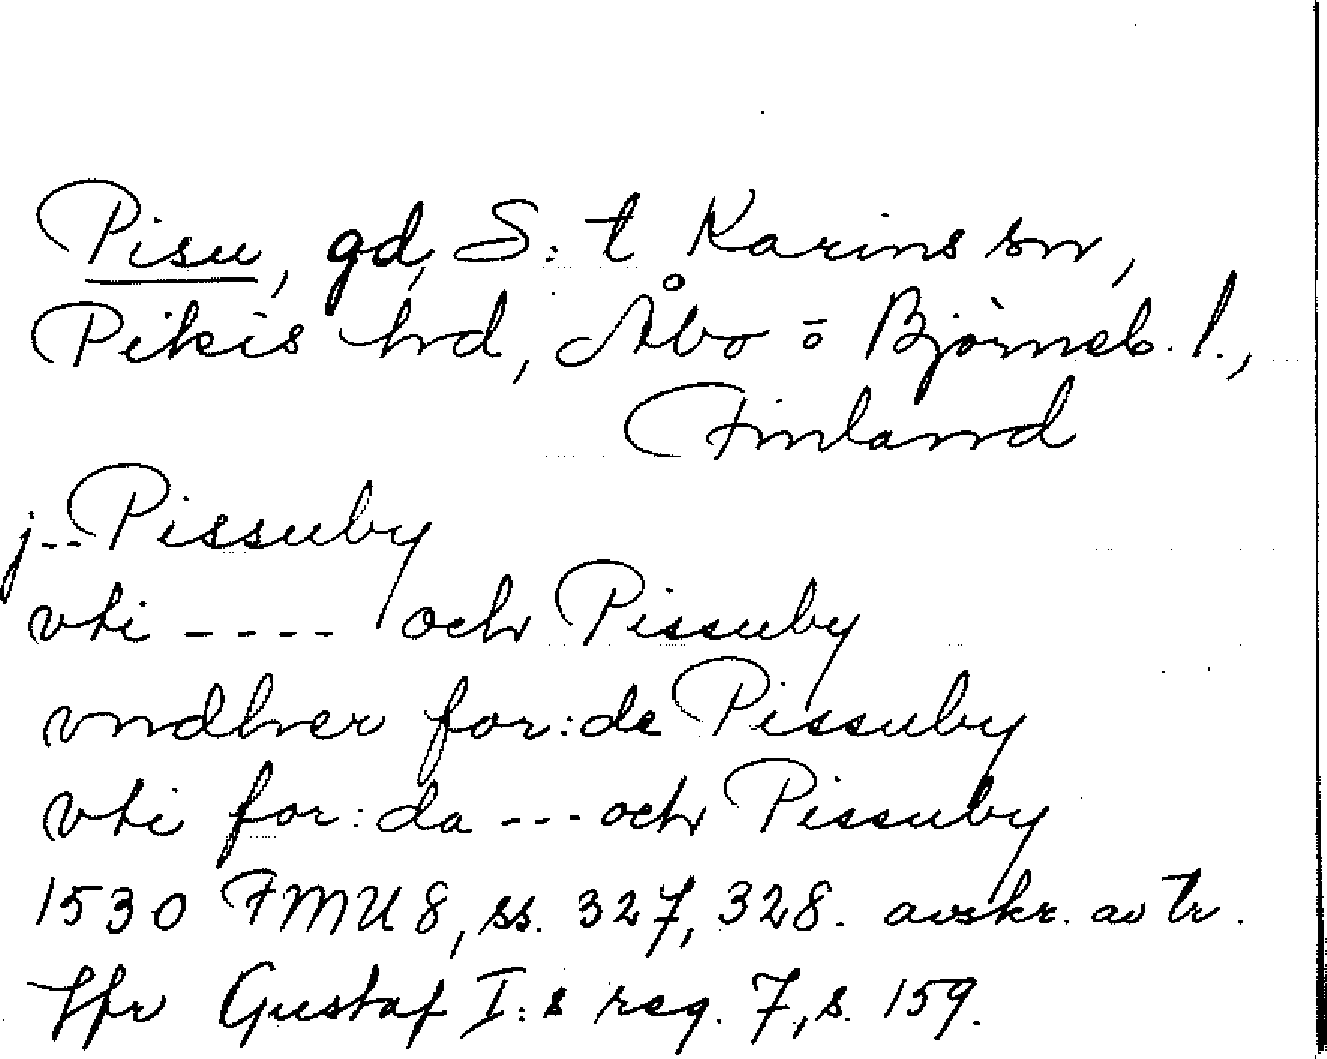 Pisu, gd, S:t Karins sn,
Pikis hd, Åbo o Björneb. l.,
Finland
j -- Pissuby
vti ---- och Pissuby
vndher for:de Pissuby
vti for:da --- och Pissuby
1530 FMU 8, ss. 327, 328. avskr. av tr.
Gustaf I:s reg. 7, s. 159.